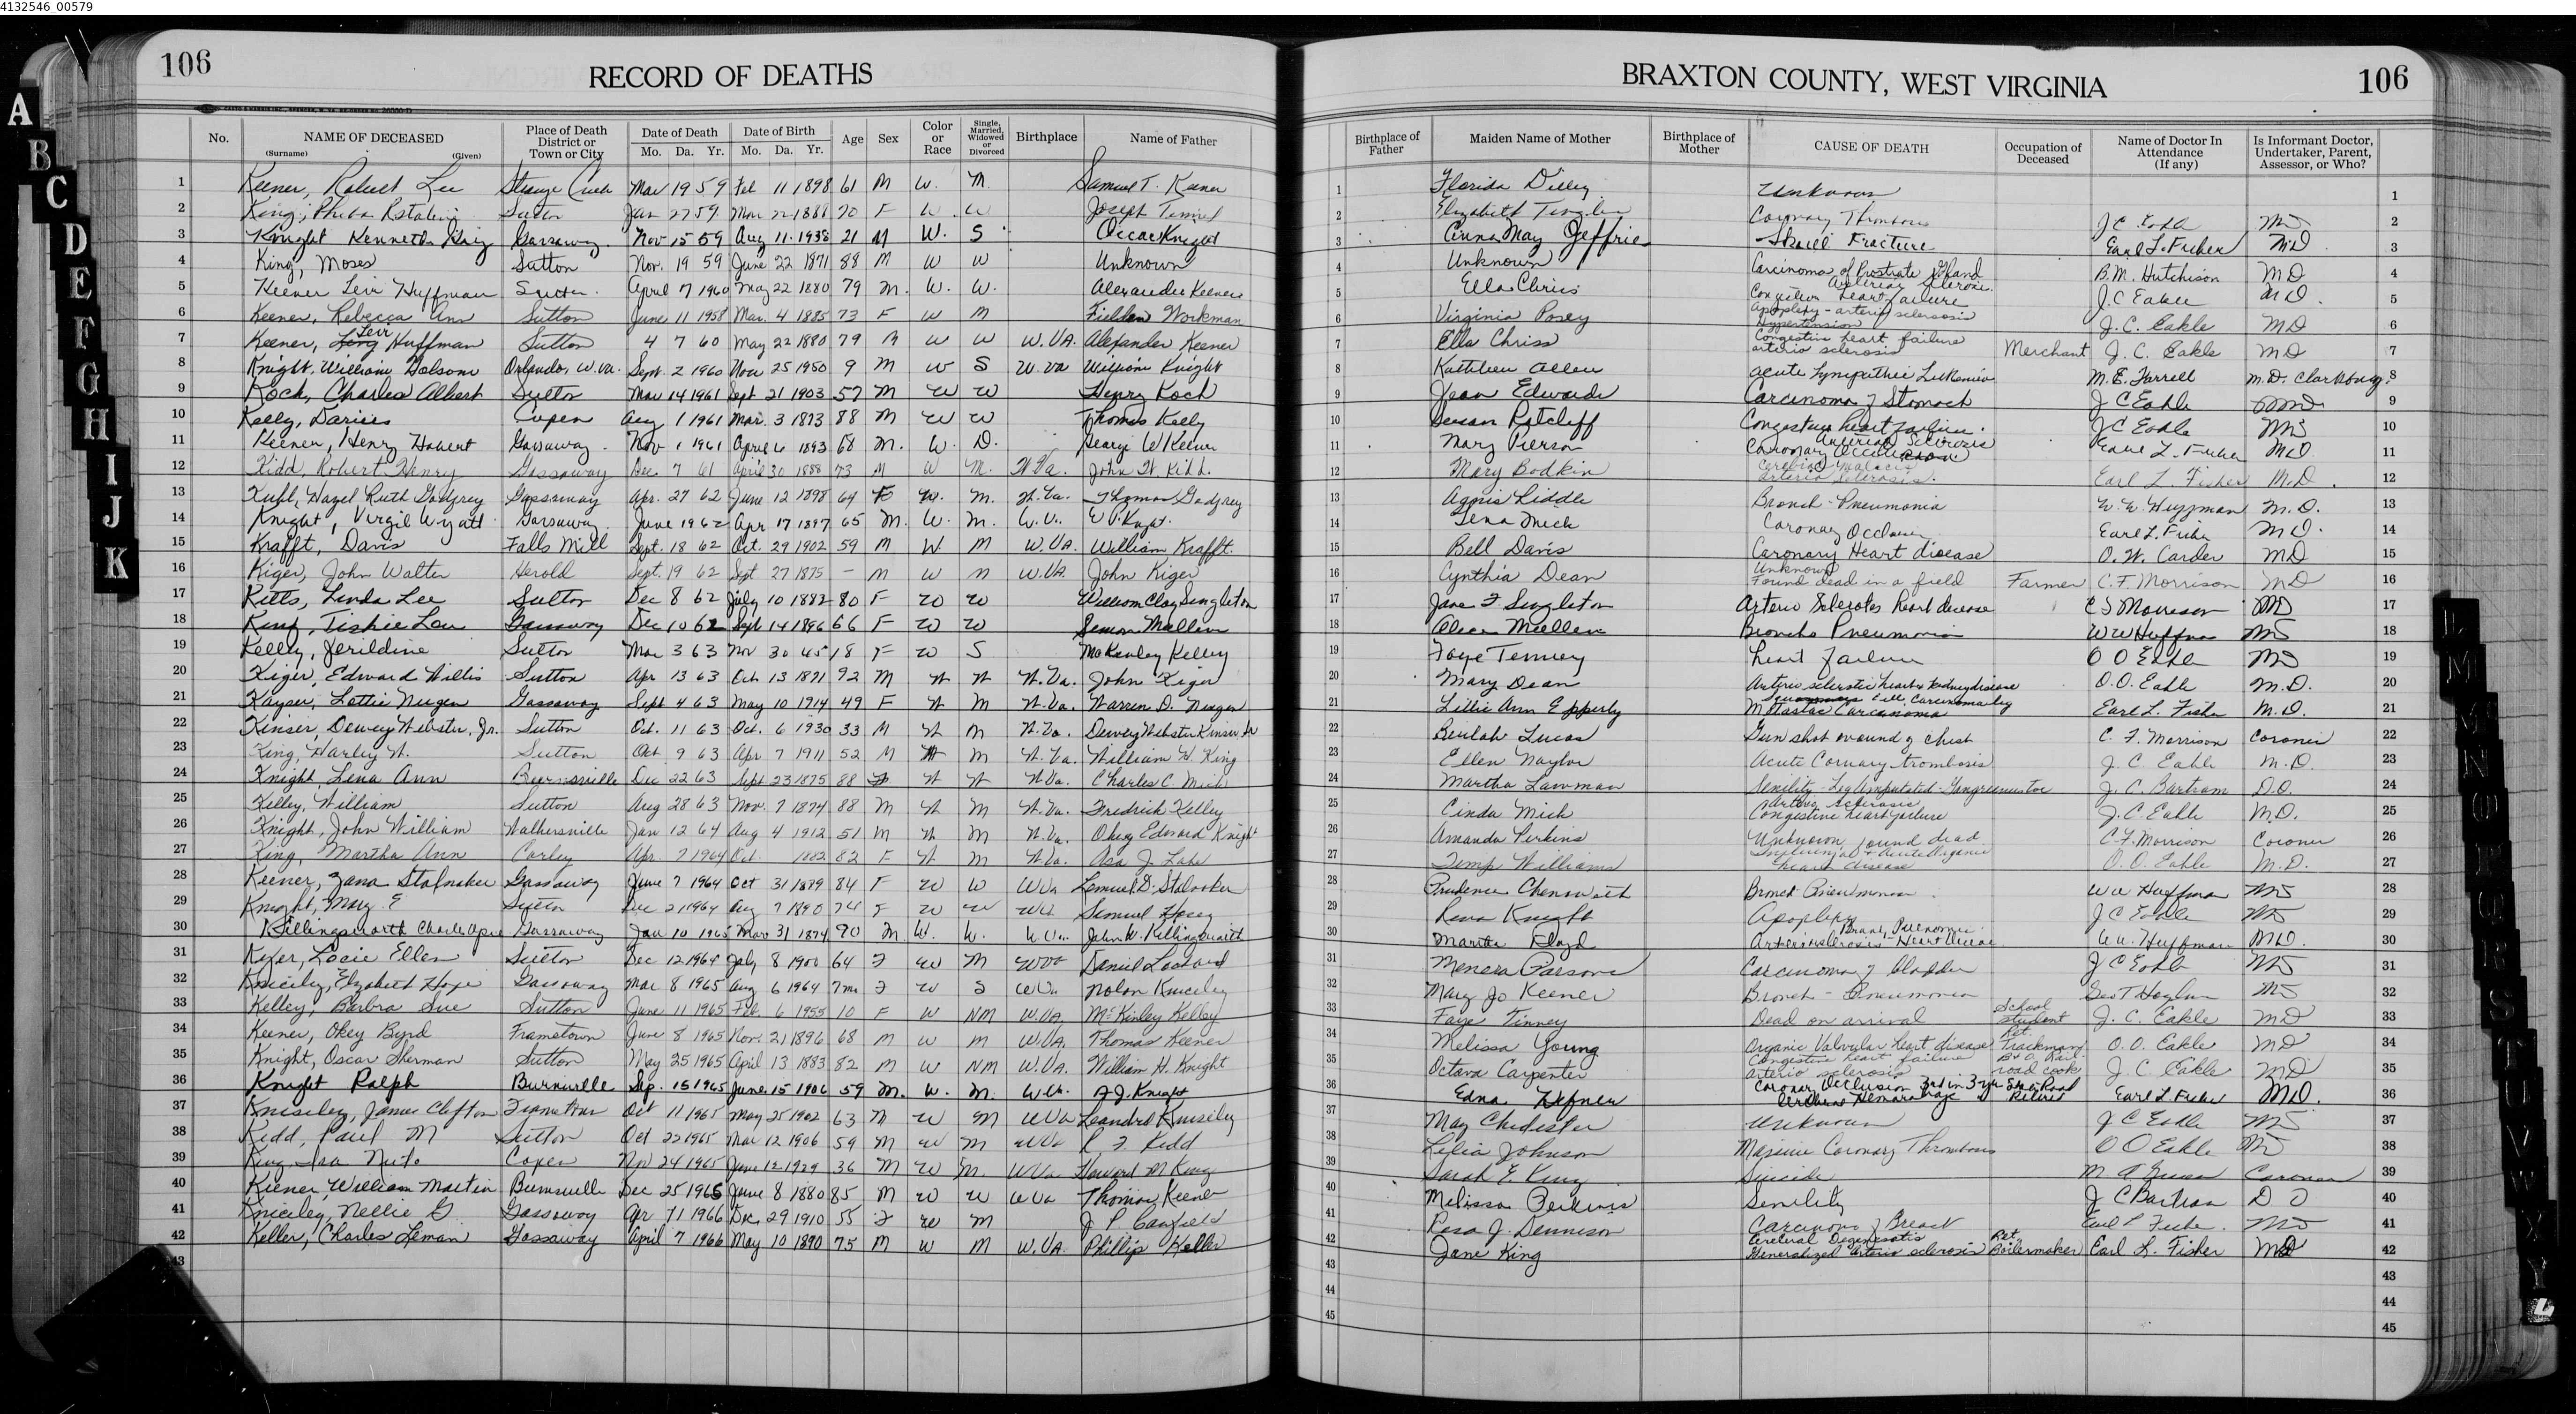 4132546_00579
106
RECORD OF DEATHS
BRAXTON COUNTY, WEST VIRGINIA
106
No. NAME OF DECEASED (Surname) (Given) Place of Death District or Town or City Date of Death Mo. Da. Yr. Date of Birth Mo. Da. Yr. Age Sex Color or Race Single, Married, Widowed or Divorced Birthplace Name of Father Birthplace of Father Maiden Name of Mother Birthplace of Mother CAUSE OF DEATH Occupation of Deceased Name of Doctor In Attendance (If any) Is Informant Doctor, Undertaker, Parent, Assessor, or Who?
1 Keener, Robert Lee Strange Creek Mar 19 59 Feb 11 1898 61 M W. M. Samuel T. Keener Florida Dilley Unknown 1
2 King, Sutton Jan 27 59 Mar 22 1888 70 F W. W. Joseph Elizabeth Coronary Thrombosis J C Eakle MD 2
3 Knight Kenneth Gassaway Nov 15 59 Aug 11 1938 21 M W. S Oscar Knight Anna May Jeffries Skull Fracture Earl L. Fisher MD 3
4 King, Moses Sutton Nov. 19 59 June 22 1871 88 M W W Unknown Unknown Carcinoma of Prostrate Gland B.M. Hutchison MD 4
5 Keener Levi Huffman Sutton April 7 1960 May 22 1880 79 M. W. W. Alexander Keener Ella Chriss Arterial Sclerosis Congestive heart failure J.C Eakle MD 5
6 Keener, Rebecca Ann Sutton June 11 1958 Mar. 4 1885 73 F W M Fielden Workman Virginia Posey Apoplexy - arterio sclerosis Hypertension J. C. Eakle MD 6
7 Keener, Levi Huffman Sutton 4 7 60 May 22 1880 79 M W W W.VA. Alexander Keener Ella Chriss Congestive heart failure arterio sclerosis Merchant J. C. Eakle MD 7
8 Knight, William Folsom Orlando, W.Va. Sept. 2 1960 Nov 25 1950 9 M W S W.Va William Knight Kathleen Allen acute Lymphathic Leukemia M. E. Farrell M.D. Clarksburg 8
9 Kock, Charles Albert Sutton Mar 14 1961 Sept 21 1903 57 M W W Henry Koch Jean Edwards Carcinoma of Stomach J C Eakle MD 9
10 Kelly, Darius Copen Aug 1 1961 Mar. 3 1873 88 M W W Thomas Kelly Susan Ratcliff Congestive heart failure J C Eakle MD 10
11 Keener, Henry Gassaway Nov 1 1961 April 6 1893 68 M. W. D. George W Keener Mary Pierson Arterial Sclerosis Coronary Occlusion Earl L. Fisher MD 11
12 Kidd, Robert Henry Gassaway Dec. 7 61 April 30 1888 73 M W M. W.Va. John W. Kidd. Mary Bodkin Cerebral Malacia Arterio Sclerosis. Earl L. Fisher M.D. 12
13 Kuhl, Hazel Ruth Godfrey Gassaway Apr. 27 62 June 12 1898 64 F W. M. W.Va. Thomas Godfrey Agnis Liddle Bronch-Pneumonia W. W. Huffman M.D. 13
14 Knight, Virgil Wyatt Gassaway June 1962 Apr 17 1897 65 M. W. M. W.V. Lena Mick Coronary Occlusion Earl L. Fisher MD. 14
15 Krafft, Davis Falls Mill Sept. 18 62 Oct. 29 1902 59 M W. M W.VA. William Krafft. Bell Davis Coronary Heart disease O. W. Carder MD 15
16 Kiger, John Walter Herold Sept. 19 62 Sept 27 1875 - M W M W.VA. John Kiger Cynthia Dean Unknown Found dead in a field Farmer C.F. Morrison MD 16
17 Kitts, Linda Lee Sutton Dec 8 62 July 10 1882 80 F W W William Clay Singleton Jane F Singleton Arterio Sclerotes heart disease C F Morrison MD 17
18 King, Tishie Lou Gassaway Dec 10 62 Sept 14 1896 66 F W W Simon Mullen Alice Mullen Broncho Pneumonia W W Huffman MD 18
19 Kelly, Jerildine Sutton Mar 3 63 Nov 30 45 18 F W S McKinley Kelley Faye Tenney heart failure O O Eakle MD 19
20 Kiger, Edward Willis Sutton Apr 13 63 Oct 13 1871 92 M W W W.Va. John Kiger Mary Dean Arterio sclerotic heart & kidney disease O.O. Eakle M.D. 20
21 Kayser, Lottie Nugen Gassaway Sept 4 63 May 10 1914 49 F W M W.Va. Warren D. Nugen Lillie Ann Epperly Metastac Carcanoma Earl L. Fisher M.D. 21
22 Kinser, Dewey Webster, Jr. Sutton Oct. 11 63 Oct. 6 1930 33 M W M W.Va. Dewey Webster Kinser Sr Beulah Lucas Gun shot wound of chest C. F. Morrison Coroner 22
23 King, Harley W. Sutton Oct 9 63 Apr 7 1911 52 M W M W.Va. William W. King Ellen Naylor Acute Cornary trombosis J. C. Eakle M.D. 23
24 Knight, Lena Ann Burnsville Dec 22 63 Sept 23 1875 88 F W W W.Va. Charles C. Mick Martha Lawman Senility - Leg Amputated - J. C. Bartram D.O. 24
25 Kelley, William Sutton Aug 28 63 Nov. 7 1874 88 M W M W.Va. Fredrick Kelley Cinda Mick Arterio Sclerosis Congestive heart failure J.C. Eakle M.D. 25
26 Knight, John William Walkersville Jan 12 64 Aug 4 1912 51 M W M W.Va. Okey Edward Knight Amanda Perkins Unknown, found dead C.F. Morrison Coroner 26
27 King, Martha Ann Corley Apr. 7 1964 Oct. 1882 82 F W M W.Va. Asa J. Lake Temp Williams heart disease O. O. Eakle M.D. 27
28 Keener, Zana Stalnaker Gassaway June 7 1964 Oct 31 1879 84 F W W WVa Lemuel D. Stalnaker Prudence Chenoweth Bronch Pneumonia W W Huffman MD 28
29 Knight, Mary E Sutton Dec 2 1964 Aug 7 1890 74 F W W WVa Samuel Rena Knight Apoplexy J C Eakle MD 29
30 Killingsworth Charles Gassaway Jan 10 1965 Mar 31 1874 90 M. W. W. W Va. John W. Killingsworth Martha Floyd Arteriosclerosis - Heart Disease W.W. Huffman MD. 30
31 Locie Ellen Sutton Dec 12 1964 July 8 1900 64 F W M WVa Daniel Lockard Menera Parsons Carcinoma of bladder J C Eakle MD 31
32 Knicely, Elizabeth Hope Gassaway Mar 8 1965 Aug 6 1964 7mo F W S WVa Nolan Knicely Mary Jo Keener Bronch - Pneumonia MD 32
33 Kelley, Barbra Sue Sutton June 11 1965 Feb 6 1955 10 F W NM W.VA. McKinley Kelley Faye Tinney Dead on arrival School student J. C. Eakle MD 33
34 Keener, Okey Byrd Frametown June 8 1965 Nov. 21 1896 68 M W M W.VA. Thomas Keener Melissa Young Organic Valvular heart disease Ret. Trackman O.O. Eakle MD 34
35 Knight, Oscar Sherman Sutton May 25 1965 April 13 1883 82 M W NM W.VA. William H. Knight Octava Carpenter Congestive heart failure arterio sclerosis B & O Rail road cook J. C. Eakle MD 35
36 Knight Ralph Burnsville Sep. 15 1965 June 15 1906 59 M. W. M. W Va. A.J. Knight Edna Hefner Coronary Occlusion 3rd in 3 yrs Cerebral Hemorahage State Road Retired Earl L Fisher MD. 36
37 Kniseley, James Clifton Frametown Oct 11 1965 May 25 1902 63 M W M WVa Leandro Kniseley May Chidester Unknown J C Eakle MD 37
38 Kidd, Paul M Sutton Oct 22 1965 Mar 12 1906 59 M W M WVa R F Kidd Lelia Johnson Massive Coronary Thrombosis O O Eakle MD 38
39 King Copen Nov 24 1965 June 12 1929 36 M W M. WVa Howard M King Sarah E. King Suicide Coroner 39
40 Keener, William Martin Burnsville Dec 25 1965 June 8 1880 85 M W W WVa Thomas Keener Melissa Perkins Senility J C Bartram D O 40
41 Knicely, Nellie G Gassaway Apr 11 1966 Dec 29 1910 55 F W M J P Canfield Rosa J. Dennison Carcinoma of Breast Earl L Fisher MD 41
42 Keller, Charles Leman Gassaway April 7 1966 May 10 1890 75 M W M W.VA. Phillip Keller Jane King Cerebral Degeneratis Generalized Arterio sclerosis Ret. Boilermaker Earl L. Fisher MD 42
43 43
44 44
45 45
A
B
C
D
E
F
G
H
I
J
K